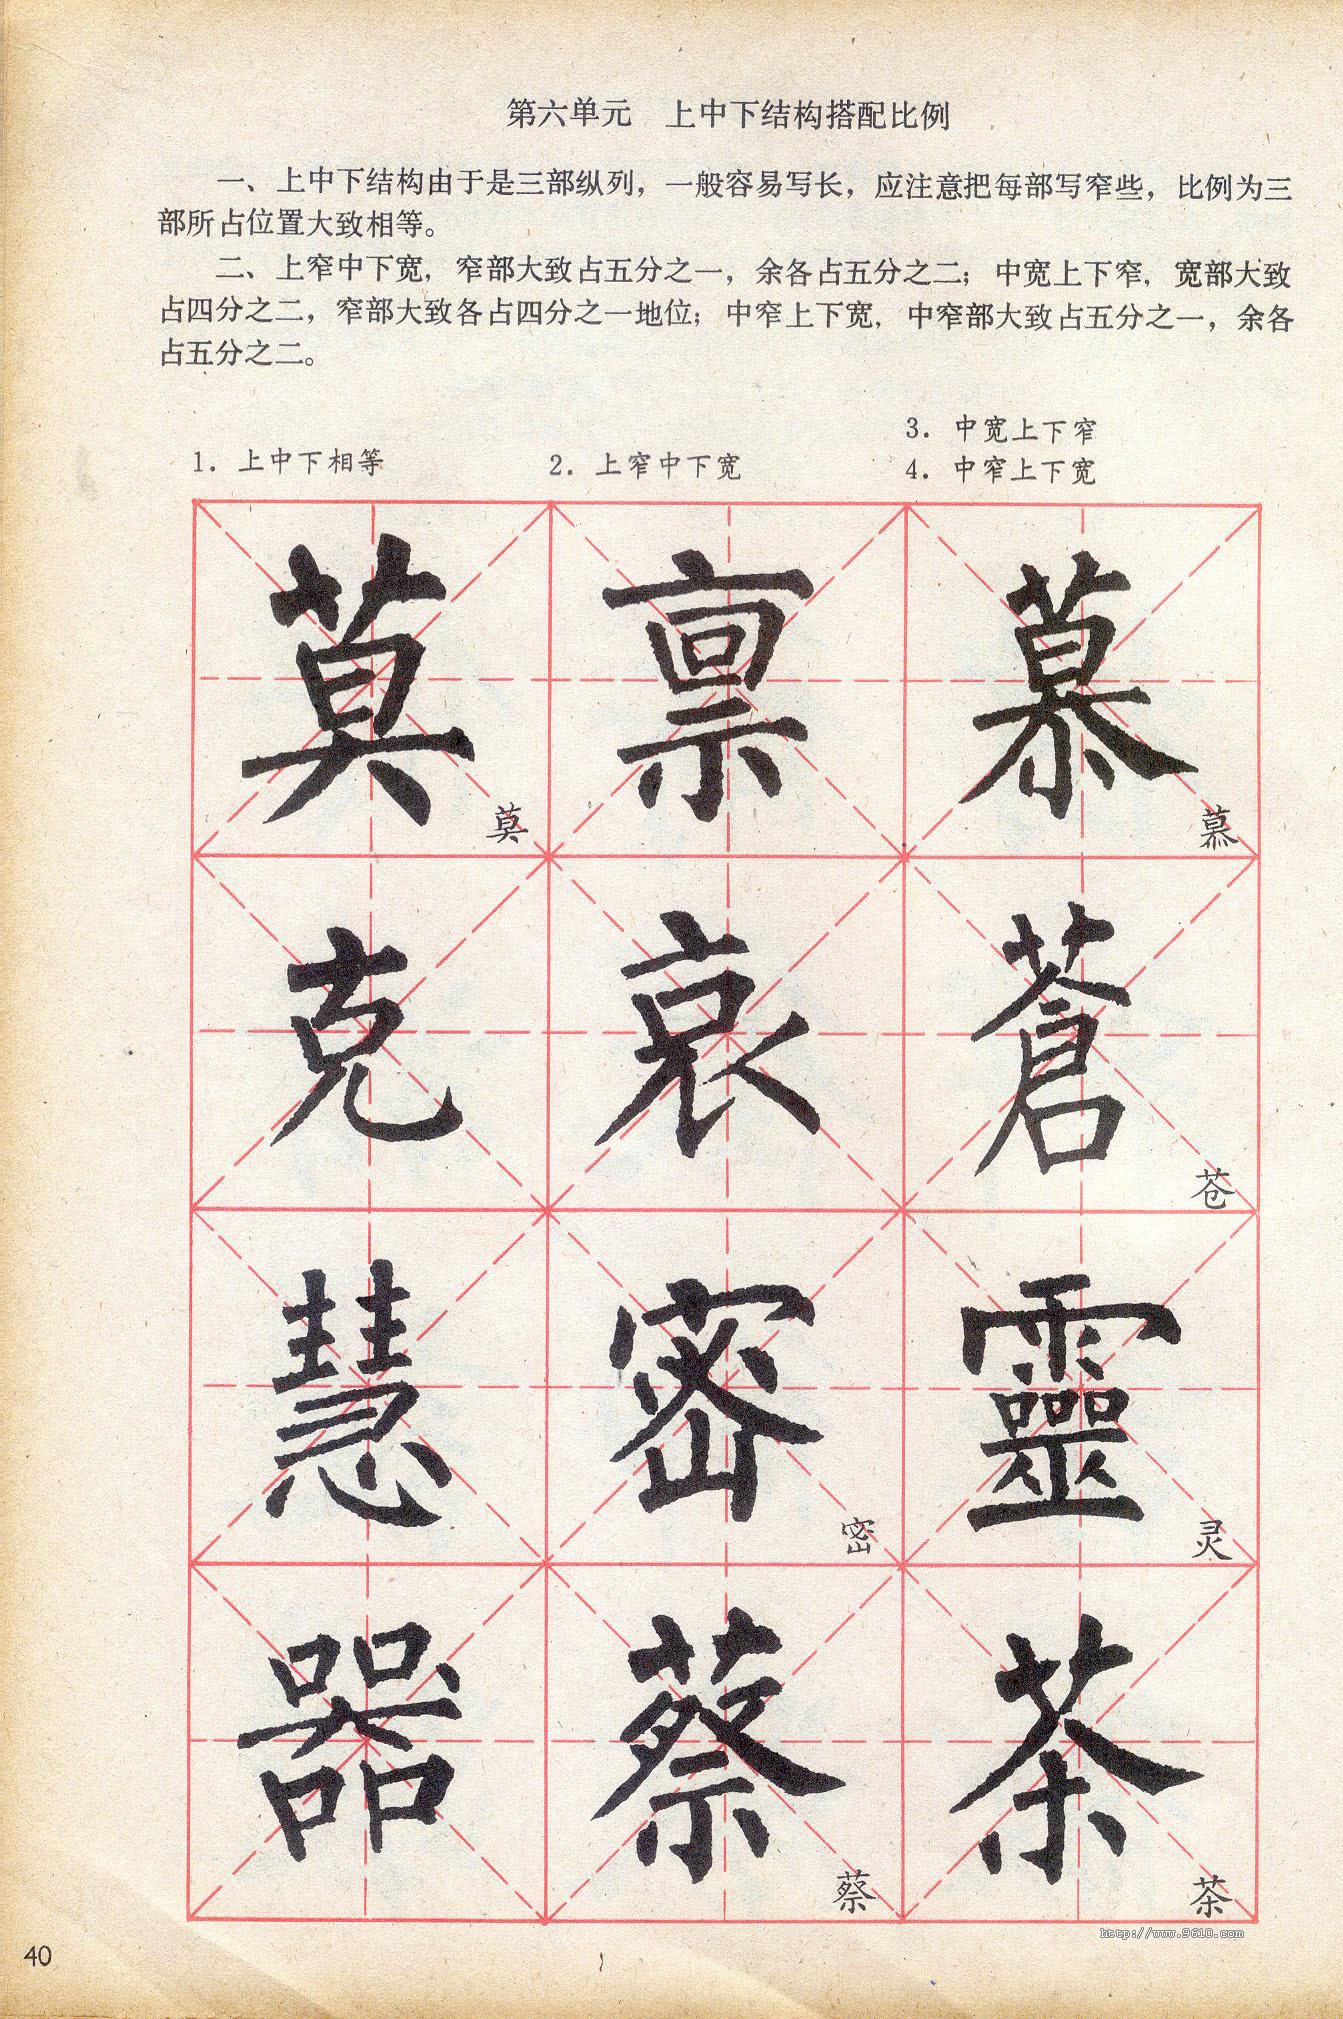 第六单元　上中下结构搭配比例
一、上中下结构由于是三部纵列，一般容易写长，应注意把每部写窄些，比例为三
部所占位置大致相等。
二、上窄中下宽，窄部大致占五分之一，余各占五分之二；中宽上下窄，宽部大致
占四分之二，窄部大致各占四分之一地位；中窄上下宽，中窄部大致占五分之一，余各
占五分之二。
1．上中下相等
2．上窄中下宽
3．中宽上下窄
4．中窄上下宽
莫 禀 慕
莫 慕
克 哀 蒼
苍
慧 密 靈
密 灵
器 蔡 茶
蔡 茶
http://www.9610.com
40